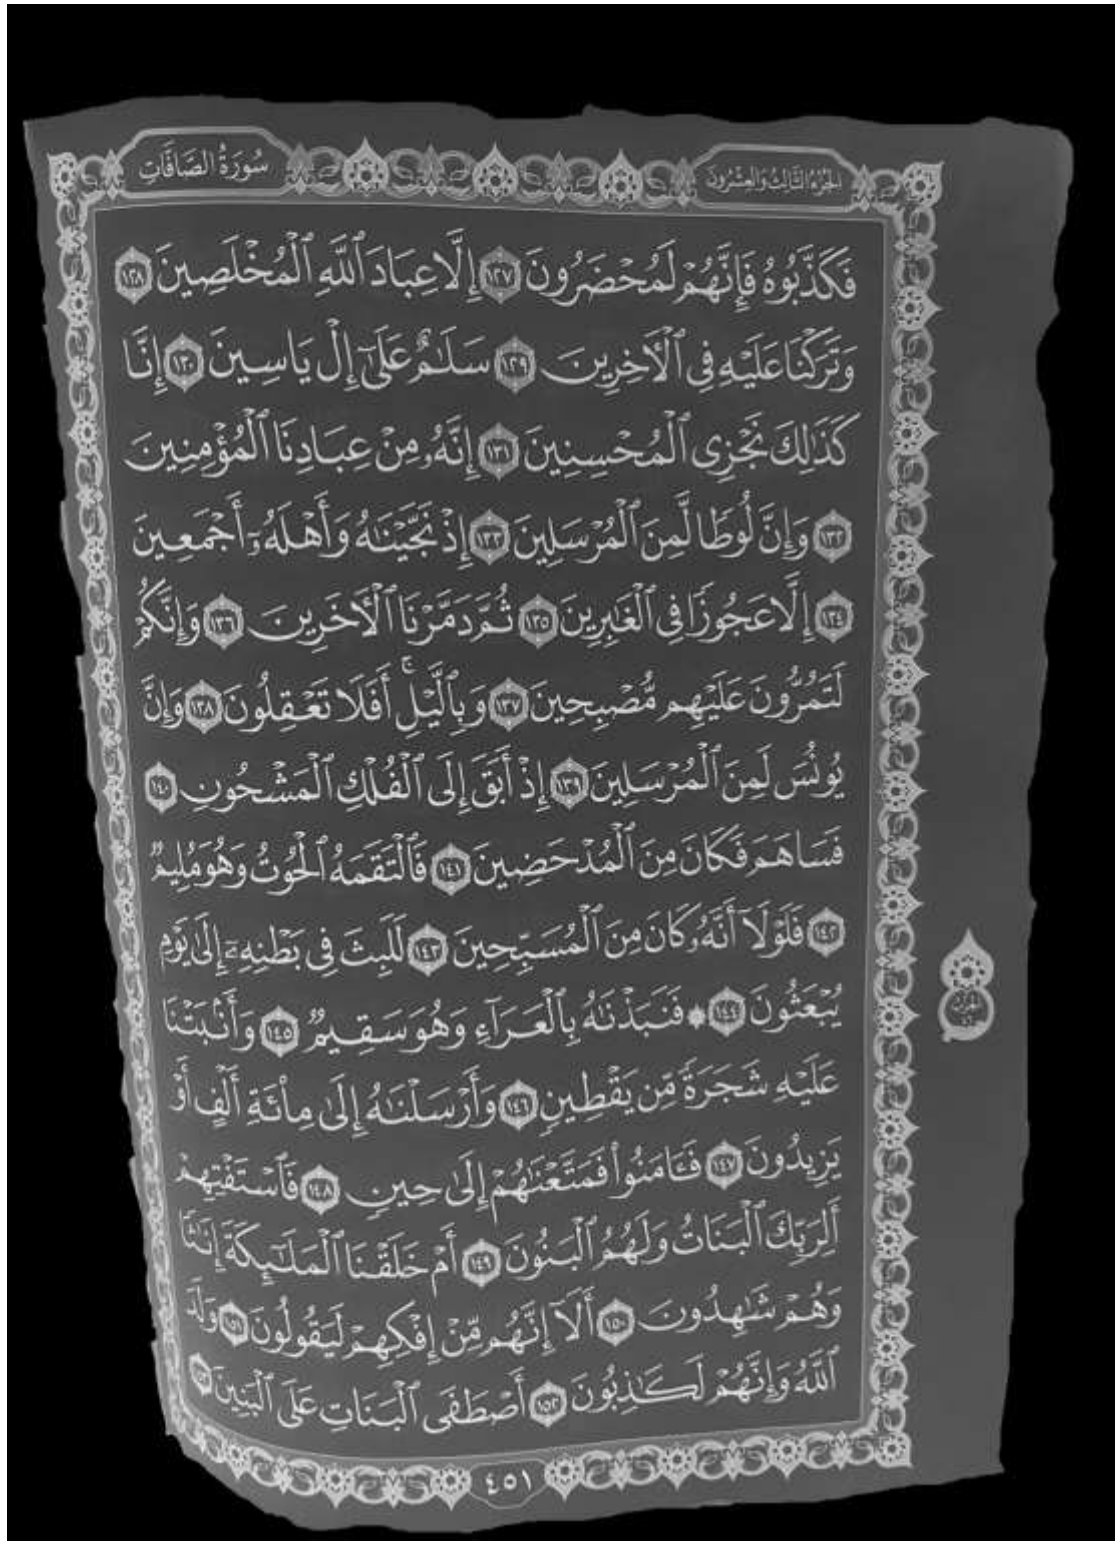 الجُزْءُ الثَّالِثُ وَالعِشْرُونَ
سُورَةُ الصَّافَّاتِ
فَكَذَّبُوهُ فَإِنَّهُمْ لَمُحْضَرُونَ ١٢٧ إِلَّا عِبَادَ ٱللَّهِ ٱلْمُخْلَصِينَ ١٢٨
وَتَرَكْنَا عَلَيْهِ فِى ٱلْأٓخِرِينَ ١٢٩ سَلَٰمٌ عَلَىٰٓ إِلْ يَاسِينَ ١٣٠ إِنَّا
كَذَٰلِكَ نَجْزِى ٱلْمُحْسِنِينَ ١٣١ إِنَّهُۥ مِنْ عِبَادِنَا ٱلْمُؤْمِنِينَ
١٣٢ وَإِنَّ لُوطًا لَّمِنَ ٱلْمُرْسَلِينَ ١٣٣ إِذْ نَجَّيْنَٰهُ وَأَهْلَهُۥٓ أَجْمَعِينَ
١٣٤ إِلَّا عَجُوزًا فِى ٱلْغَٰبِرِينَ ١٣٥ ثُمَّ دَمَّرْنَا ٱلْأٓخَرِينَ ١٣٦ وَإِنَّكُمْ
لَتَمُرُّونَ عَلَيْهِم مُّصْبِحِينَ ١٣٧ وَبِٱلَّيْلِ ۚ أَفَلَا تَعْقِلُونَ ١٣٨ وَإِنَّ
يُونُسَ لَمِنَ ٱلْمُرْسَلِينَ ١٣٩ إِذْ أَبَقَ إِلَى ٱلْفُلْكِ ٱلْمَشْحُونِ ١٤٠
فَسَاهَمَ فَكَانَ مِنَ ٱلْمُدْحَضِينَ ١٤١ فَٱلْتَقَمَهُ ٱلْحُوتُ وَهُوَ مُلِيمٌ
١٤٢ فَلَوْلَآ أَنَّهُۥ كَانَ مِنَ ٱلْمُسَبِّحِينَ ١٤٣ لَلَبِثَ فِى بَطْنِهِۦٓ إِلَىٰ يَوْمِ
يُبْعَثُونَ ١٤٤ ۞ فَنَبَذْنَٰهُ بِٱلْعَرَآءِ وَهُوَ سَقِيمٌ ١٤٥ وَأَنۢبَتْنَا
عَلَيْهِ شَجَرَةً مِّن يَقْطِينٍ ١٤٦ وَأَرْسَلْنَٰهُ إِلَىٰ مِا۟ئَةِ أَلْفٍ أَوْ
يَزِيدُونَ ١٤٧ فَـَٔامَنُوا۟ فَمَتَّعْنَٰهُمْ إِلَىٰ حِينٍ ١٤٨ فَٱسْتَفْتِهِمْ
أَلِرَبِّكَ ٱلْبَنَاتُ وَلَهُمُ ٱلْبَنُونَ ١٤٩ أَمْ خَلَقْنَا ٱلْمَلَٰٓئِكَةَ إِنَٰثًا
وَهُمْ شَٰهِدُونَ ١٥٠ أَلَآ إِنَّهُم مِّنْ إِفْكِهِمْ لَيَقُولُونَ ١٥١ وَلَدَ
ٱللَّهُ وَإِنَّهُمْ لَكَٰذِبُونَ ١٥٢ أَصْطَفَى ٱلْبَنَاتِ عَلَى ٱلْبَنِينَ ١٥٣
٤٥١